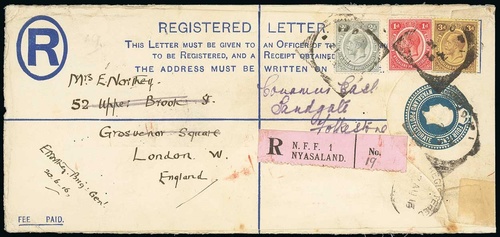 REGISTERED LETTER
R
THIS LETTER MUST BE GIVEN TO AN OFFICER OF
TO BE REGISTERED, AND A RECEIPT OBTAINED
THE ADDRESS MUST BE WRITTEN ON
Mrs E. Northey
52 Upper Brook St.
Grosvenor Square
London. W.
England
Sandgate
Folkestone
R
N. F. F. 1
NYASALAND.
No.
19
20.6.16.
FEE PAID.